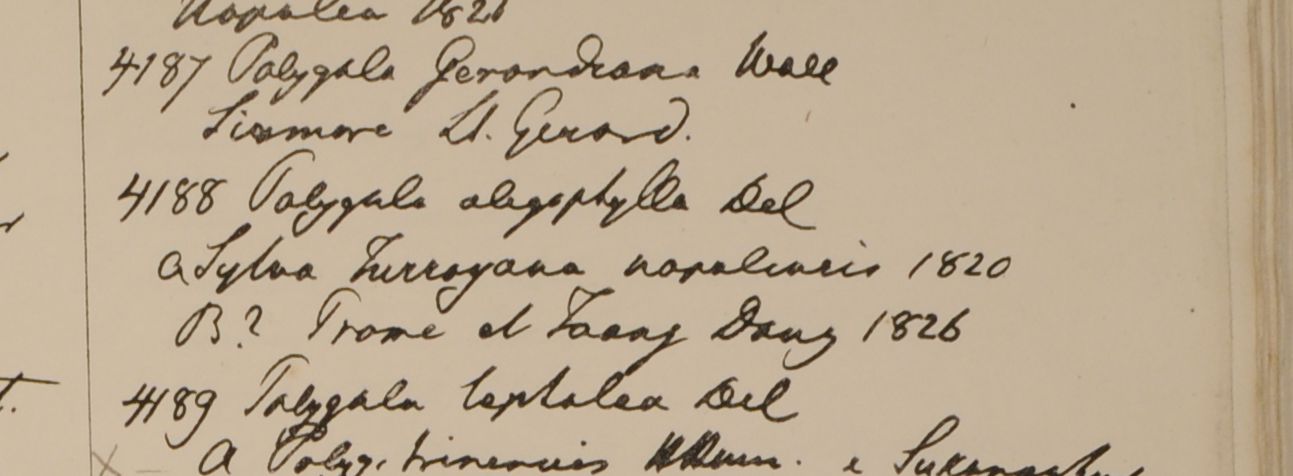 Napalea 1821
4187 Polygala Gerardiana Wall
Sirmore Lt. Gerard.
4188 Polygala oligophylla Del
a Sylva Turrayana napalensis 1820
B? Prome et Taong Dong 1826
4189 Polygala leptalea Del
a Polyg. trinervis